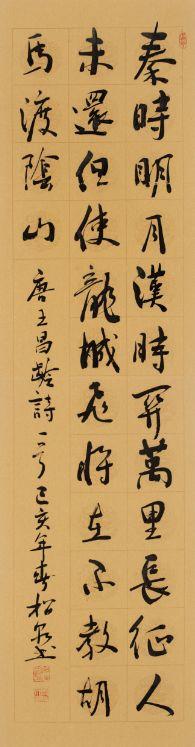 秦時明月漢時關萬里長征人
未還但使龍城飛將在不教胡
馬渡陰山
唐王昌齡詩一首己亥年春松